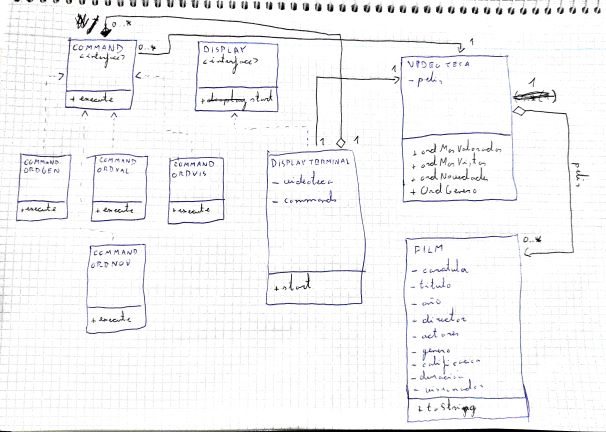 0..*
COMMAND
<interface>
+ execute
0..*
DISPLAY
<interface>
+ start
1
VIDEOTECA
- pelis
+ ordMasValorados
+ ordMasVistos
+ ordNovedades
+ OrdGenero
1
1
COMMAND
ORDGEN
+execute
COMMAND
ORDVAL
+execute
COMMAND
ORDVIS
+execute
COMMAND
ORDNOV
+ execute
1
1
DISPLAYTERMINAL
- videoteca
- commands
+ start
pelis
0..*
FILM
- caratula
- titulo
- año
- director
- actores
- genero
- calificacion
- duracion
+ toString